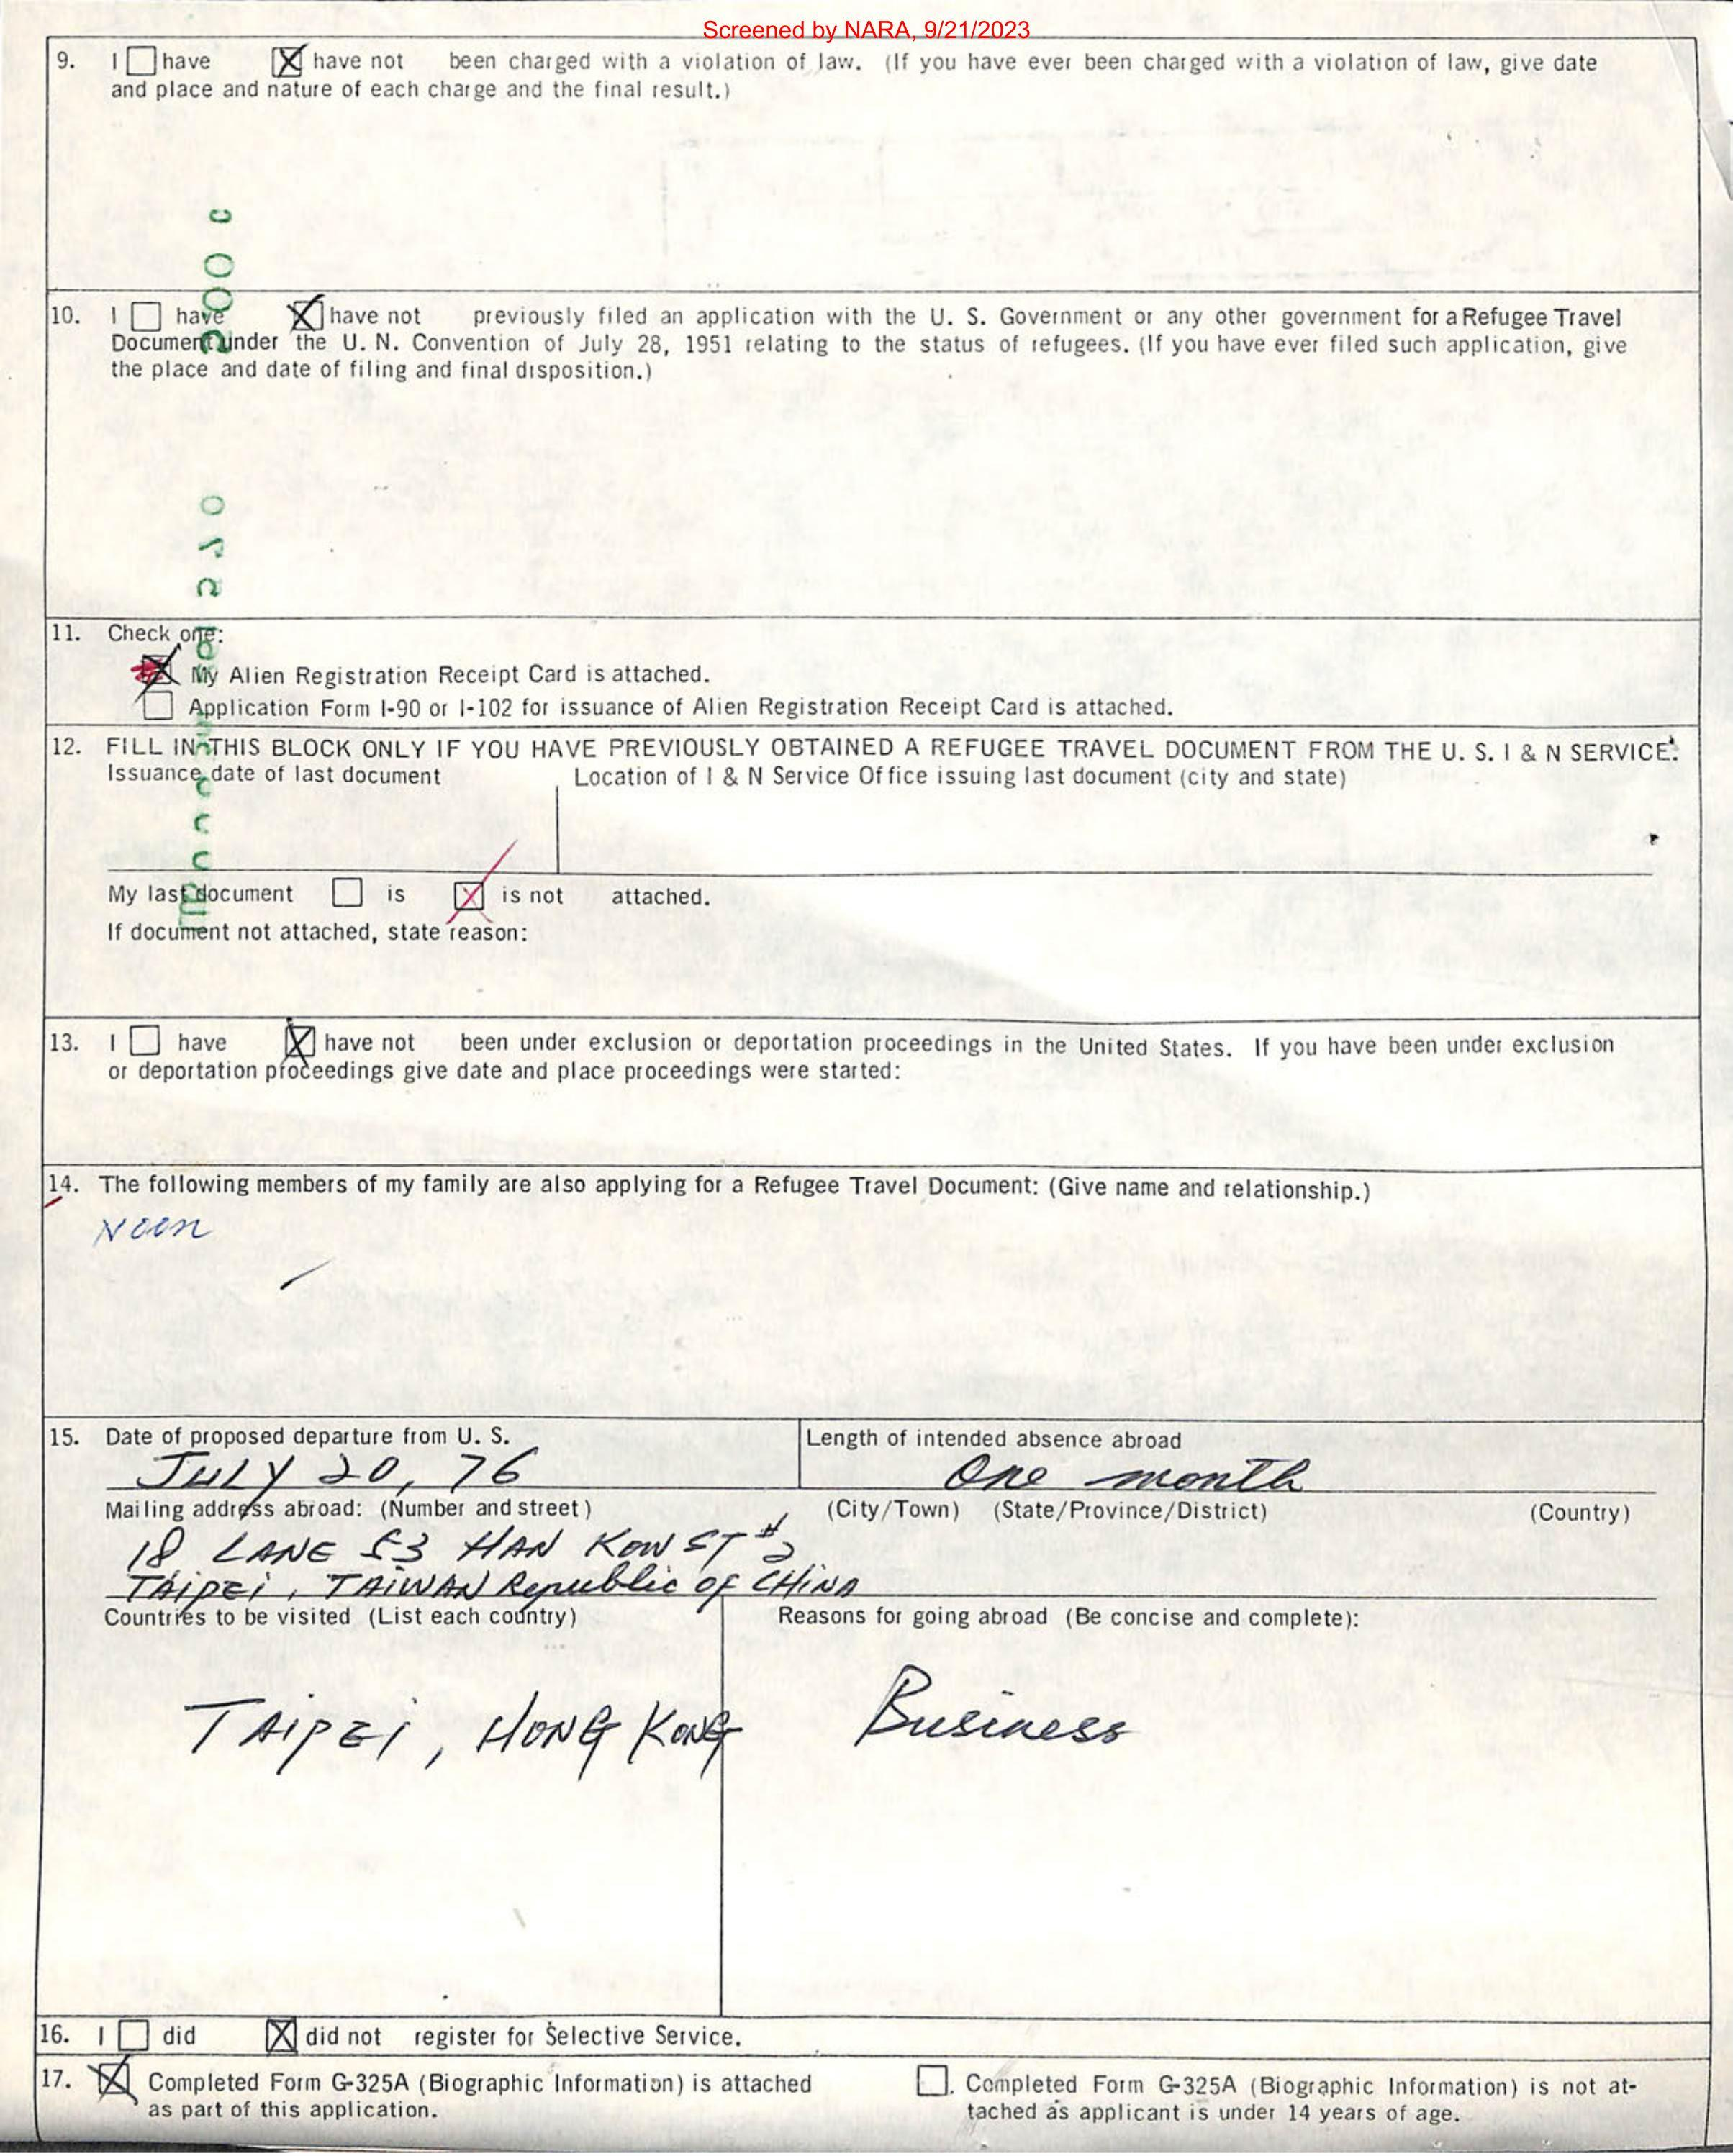 Screened by NARA, 9/21/2023
9. I have have not been charged with a violation of law. (If you have ever been charged with a violation of law, give date
and place and nature of each charge and the final result.)
10. I have have not previously filed an application with the U. S. Government or any other government for a Refugee Travel
Document under the U. N. Convention of July 28, 1951 relating to the status of refugees. (If you have ever filed such application, give
the place and date of filing and final disposition.)
11. Check one:
My Alien Registration Receipt Card is attached.
Application Form I-90 or I-102 for issuance of Alien Registration Receipt Card is attached.
12. FILL IN THIS BLOCK ONLY IF YOU HAVE PREVIOUSLY OBTAINED A REFUGEE TRAVEL DOCUMENT FROM THE U. S. I & N SERVICE.
Issuance date of last document Location of I & N Service Office issuing last document (city and state)
My last document is is not attached.
If document not attached, state reason:
13. I have have not been under exclusion or deportation proceedings in the United States. If you have been under exclusion
or deportation proceedings give date and place proceedings were started:
14. The following members of my family are also applying for a Refugee Travel Document: (Give name and relationship.)
Noon
15. Date of proposed departure from U. S. Length of intended absence abroad
JULY 20, 76 One month
Mailing address abroad: (Number and street) (City/Town) (State/Province/District) (Country)
18 LANE 53 HAN KOW ST #2
TAIPEI, TAIWAN Republic OF CHINA
Countries to be visited (List each country) Reasons for going abroad (Be concise and complete):
TAIPEI, HONG KONG Business
16. I did did not register for Selective Service.
17. Completed Form G-325A (Biographic Information) is attached Completed Form G-325A (Biographic Information) is not at-
as part of this application. tached as applicant is under 14 years of age.